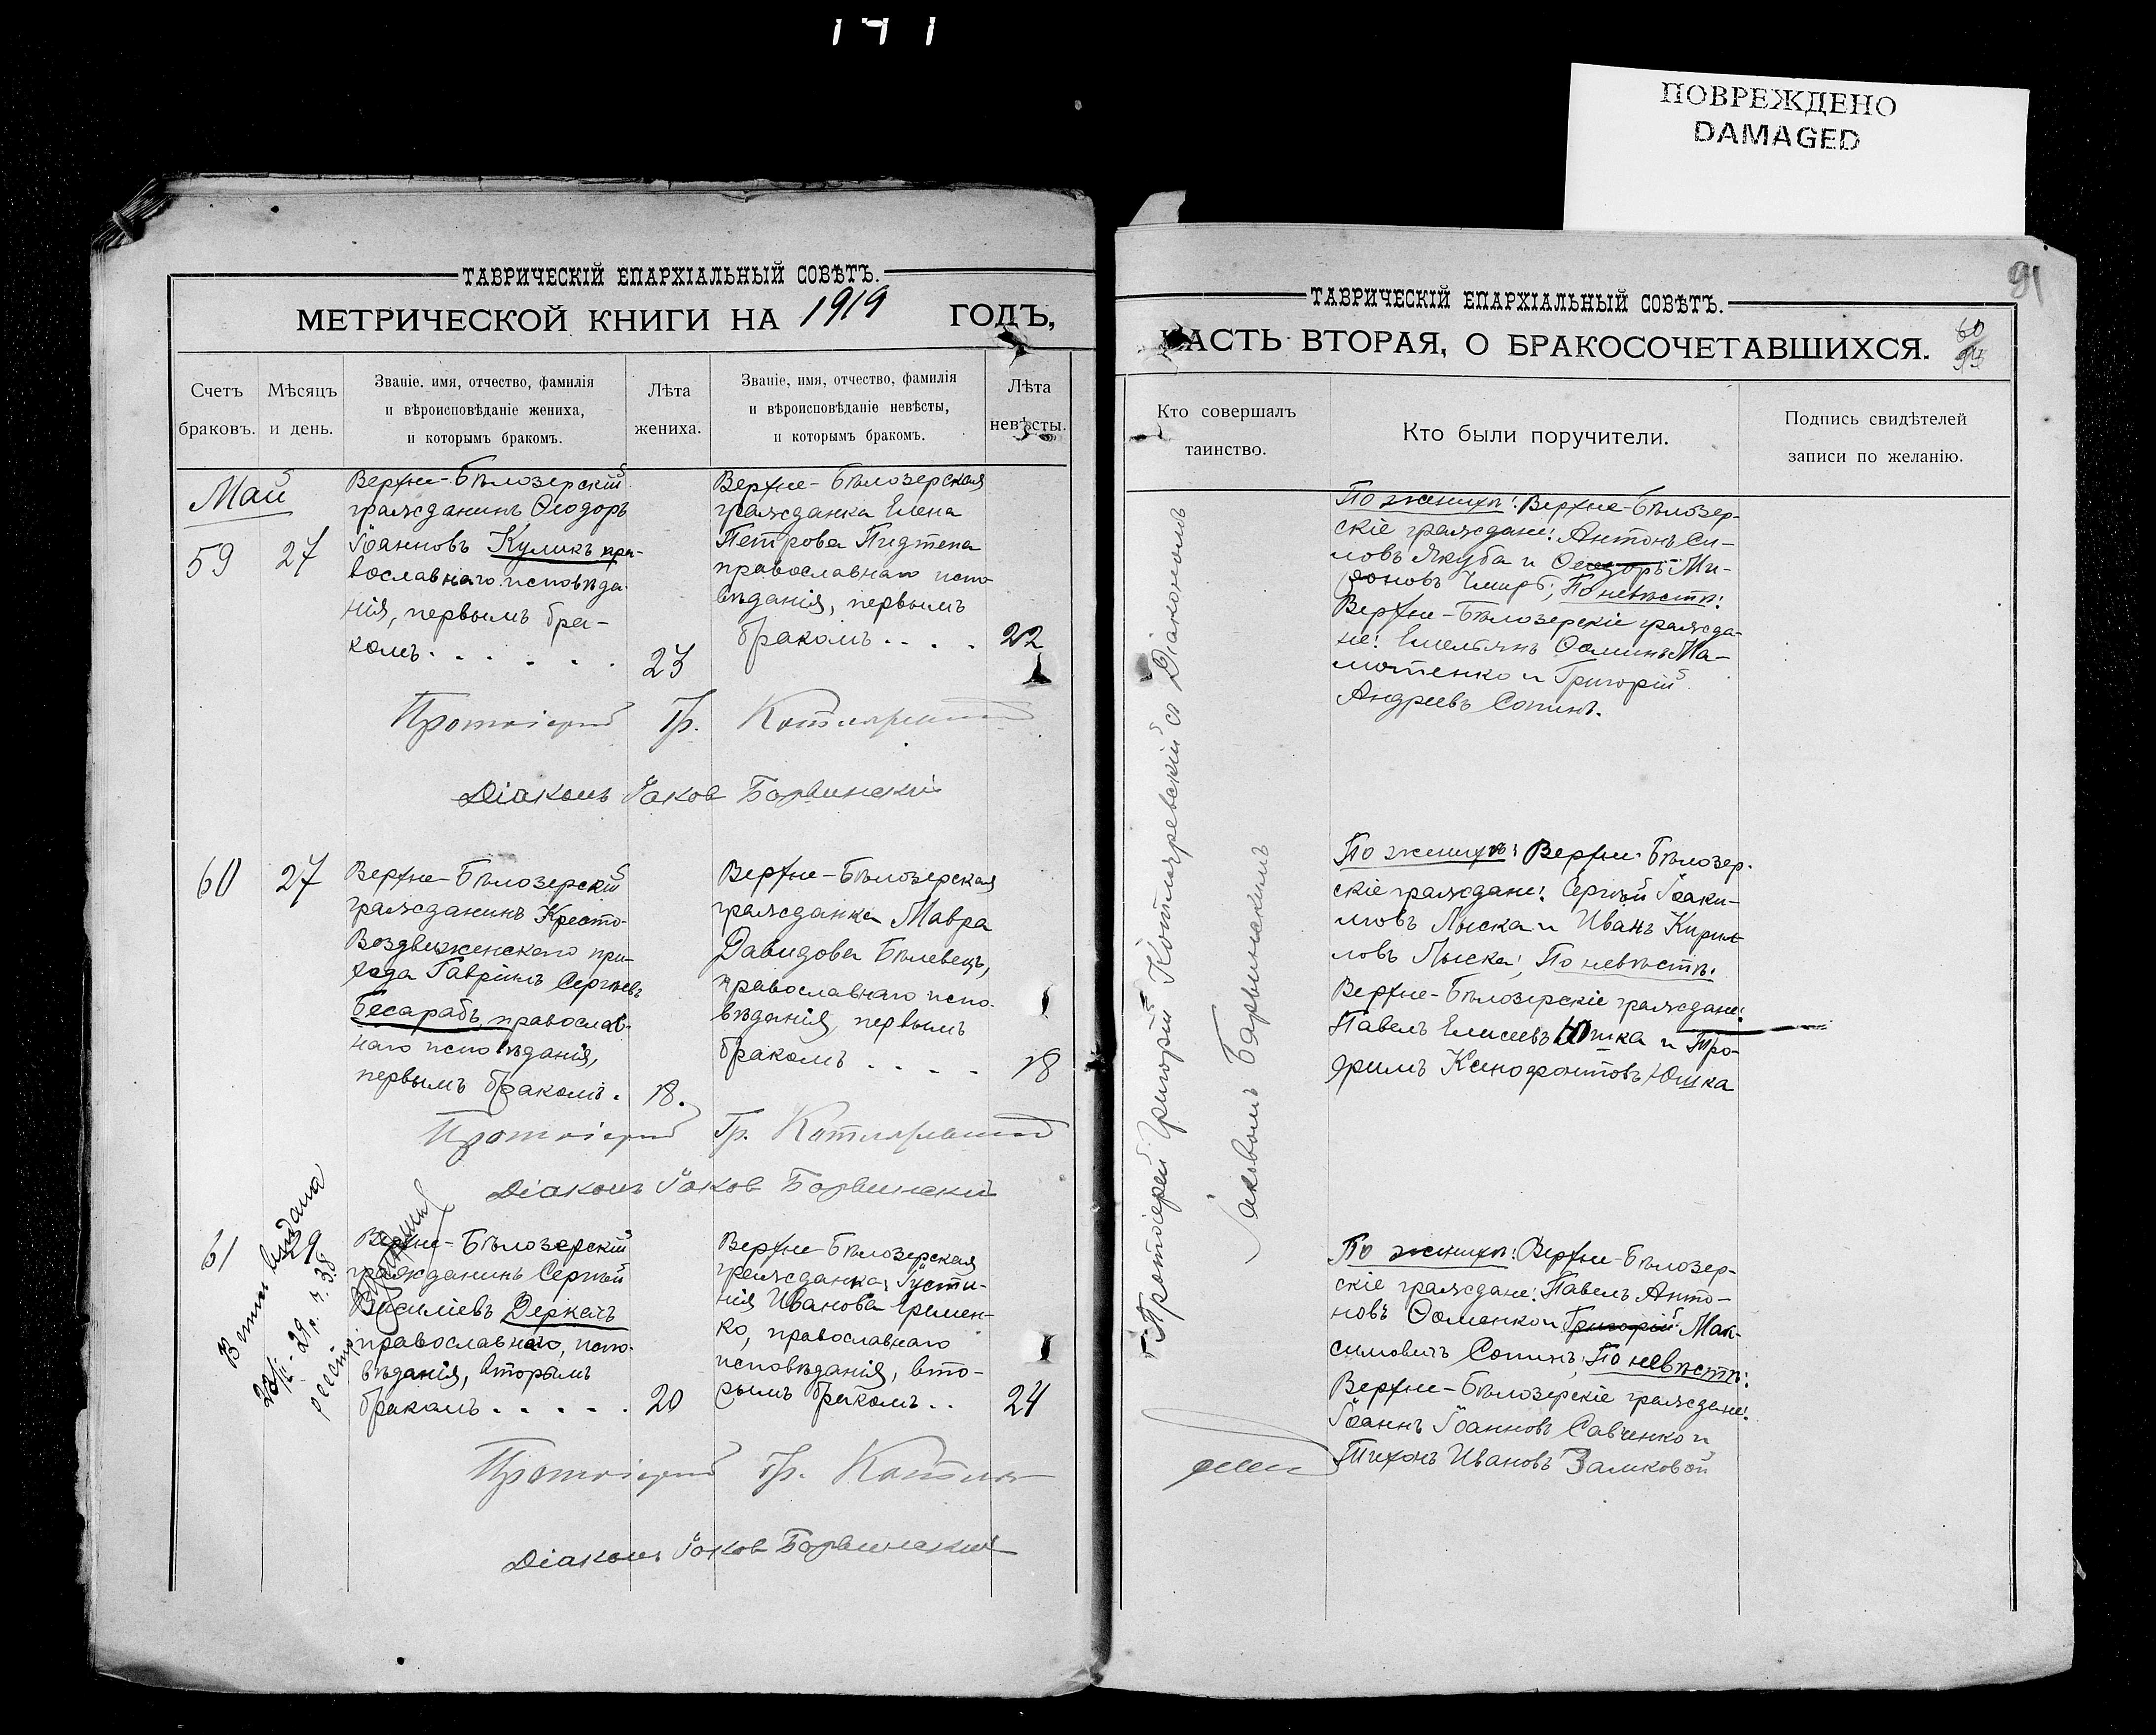 141
ПОВРЕЖДЕНО
DAMAGED
ТАВРИЧЕСКІЙ ЕПАРХІАЛЬНЫЙ СОВѢТЪ.
МЕТРИЧЕСКОЙ КНИГИ НА 1919 ГОДЪ,
Счетъ браковъ.
Мѣсяцъ и день.
Званіе. имя, отчество, фамилія
и вѣроисповѣданіе жениха,
и которымъ бракомъ.
Лѣта жениха.
Званіе, имя, отчество, фамилія
и вѣроисповѣданіе невѣсты,
и которымъ бракомъ.
Лѣта невѣсты.
Май
59
27
Верхне-Бѣлозерскій
гражданинъ Ѳеодоръ
Іоанновъ Куликъ пра-
вославнаго исповѣда-
нія, первымъ бра-
комъ. . . . . .
23
Верхне-Бѣлозерская
гражданка Елена
Петрова
православнаго испо-
вѣданія, первымъ
бракомъ . . . .
22
Протоіерей Гр. Котляревскій
Діаконъ Іаковъ Барвинскій
60
27
Верхне-Бѣлозерскій
гражданинъ Кресто-
Воздвиженскаго при-
хода Гавріилъ Сергѣевъ
Бесарабъ, православ-
наго исповѣданія,
первымъ бракомъ.
18.
Верхне-Бѣлозерская
гражданка Мавра
Давидова Бѣлевецъ,
православнаго испо-
вѣданія, первымъ
бракомъ . . . .
18
Протоіерей Гр. Котляревскій
Діаконъ Іаковъ Барвинскій
61
29
Верхне-Бѣлозерскій
гражданинъ Сергѣй
Василіевъ Деркачъ
православнаго, испо-
вѣданія, вторымъ
бракомъ . . . . .
20
Верхне-Бѣлозерская
гражданка Іусти-
нія Иванова Еремен-
ко, православнаго
исповѣданія, вто-
рымъ бракомъ . .
24
выдана
Протоіерей Гр. Котля
Діаконъ Іаковъ Барвинскій
91
ТАВРИЧЕСКІЙ ЕПАРХІАЛЬНЫЙ СОВѢТЪ.
ЧАСТЬ ВТОРАЯ, О БРАКОСОЧЕТАВШИХСЯ.
60
Кто совершалъ
таинство.
Кто были поручители.
Подпись свидѣтелей
записи по желанію.
Протоіерей Григорій Котляревскій съ Діакономъ
Іаковомъ Барвинскимъ
По женихѣ: Верхне-Бѣлозер-
скіе граждане: Антонъ Си-
ловъ Якуба и Ѳеодоръ Ми-
роновъ Чмирь; По невѣстѣ:
Верхне-Бѣлозерскіе гражда-
не: Емельянъ Ѳоминъ Ма-
мотенко и Григорій
Андреевъ Сопинъ.
По женихѣ: Верхне-Бѣлозер-
скіе граждане: Сергѣй Іоаки-
мовъ Лыска и Иванъ Кирил-
ловъ Лыска; По невѣстѣ:
Верхне-Бѣлозерскіе граждане:
Павелъ Елисеевъ Юшка и Тро-
фимъ Ксенофонтовъ Юшка
По женихѣ: Верхне-Бѣлозер-
скіе граждане: Павелъ Анто-
новъ Ѳоменко и Григорій Мак-
симовичъ Сопинъ; По невѣстѣ:
Верхне-Бѣлозерскіе граждане:
Іоаннъ Іоанновъ Савченко и
Тихонъ Ивановъ Заликовой